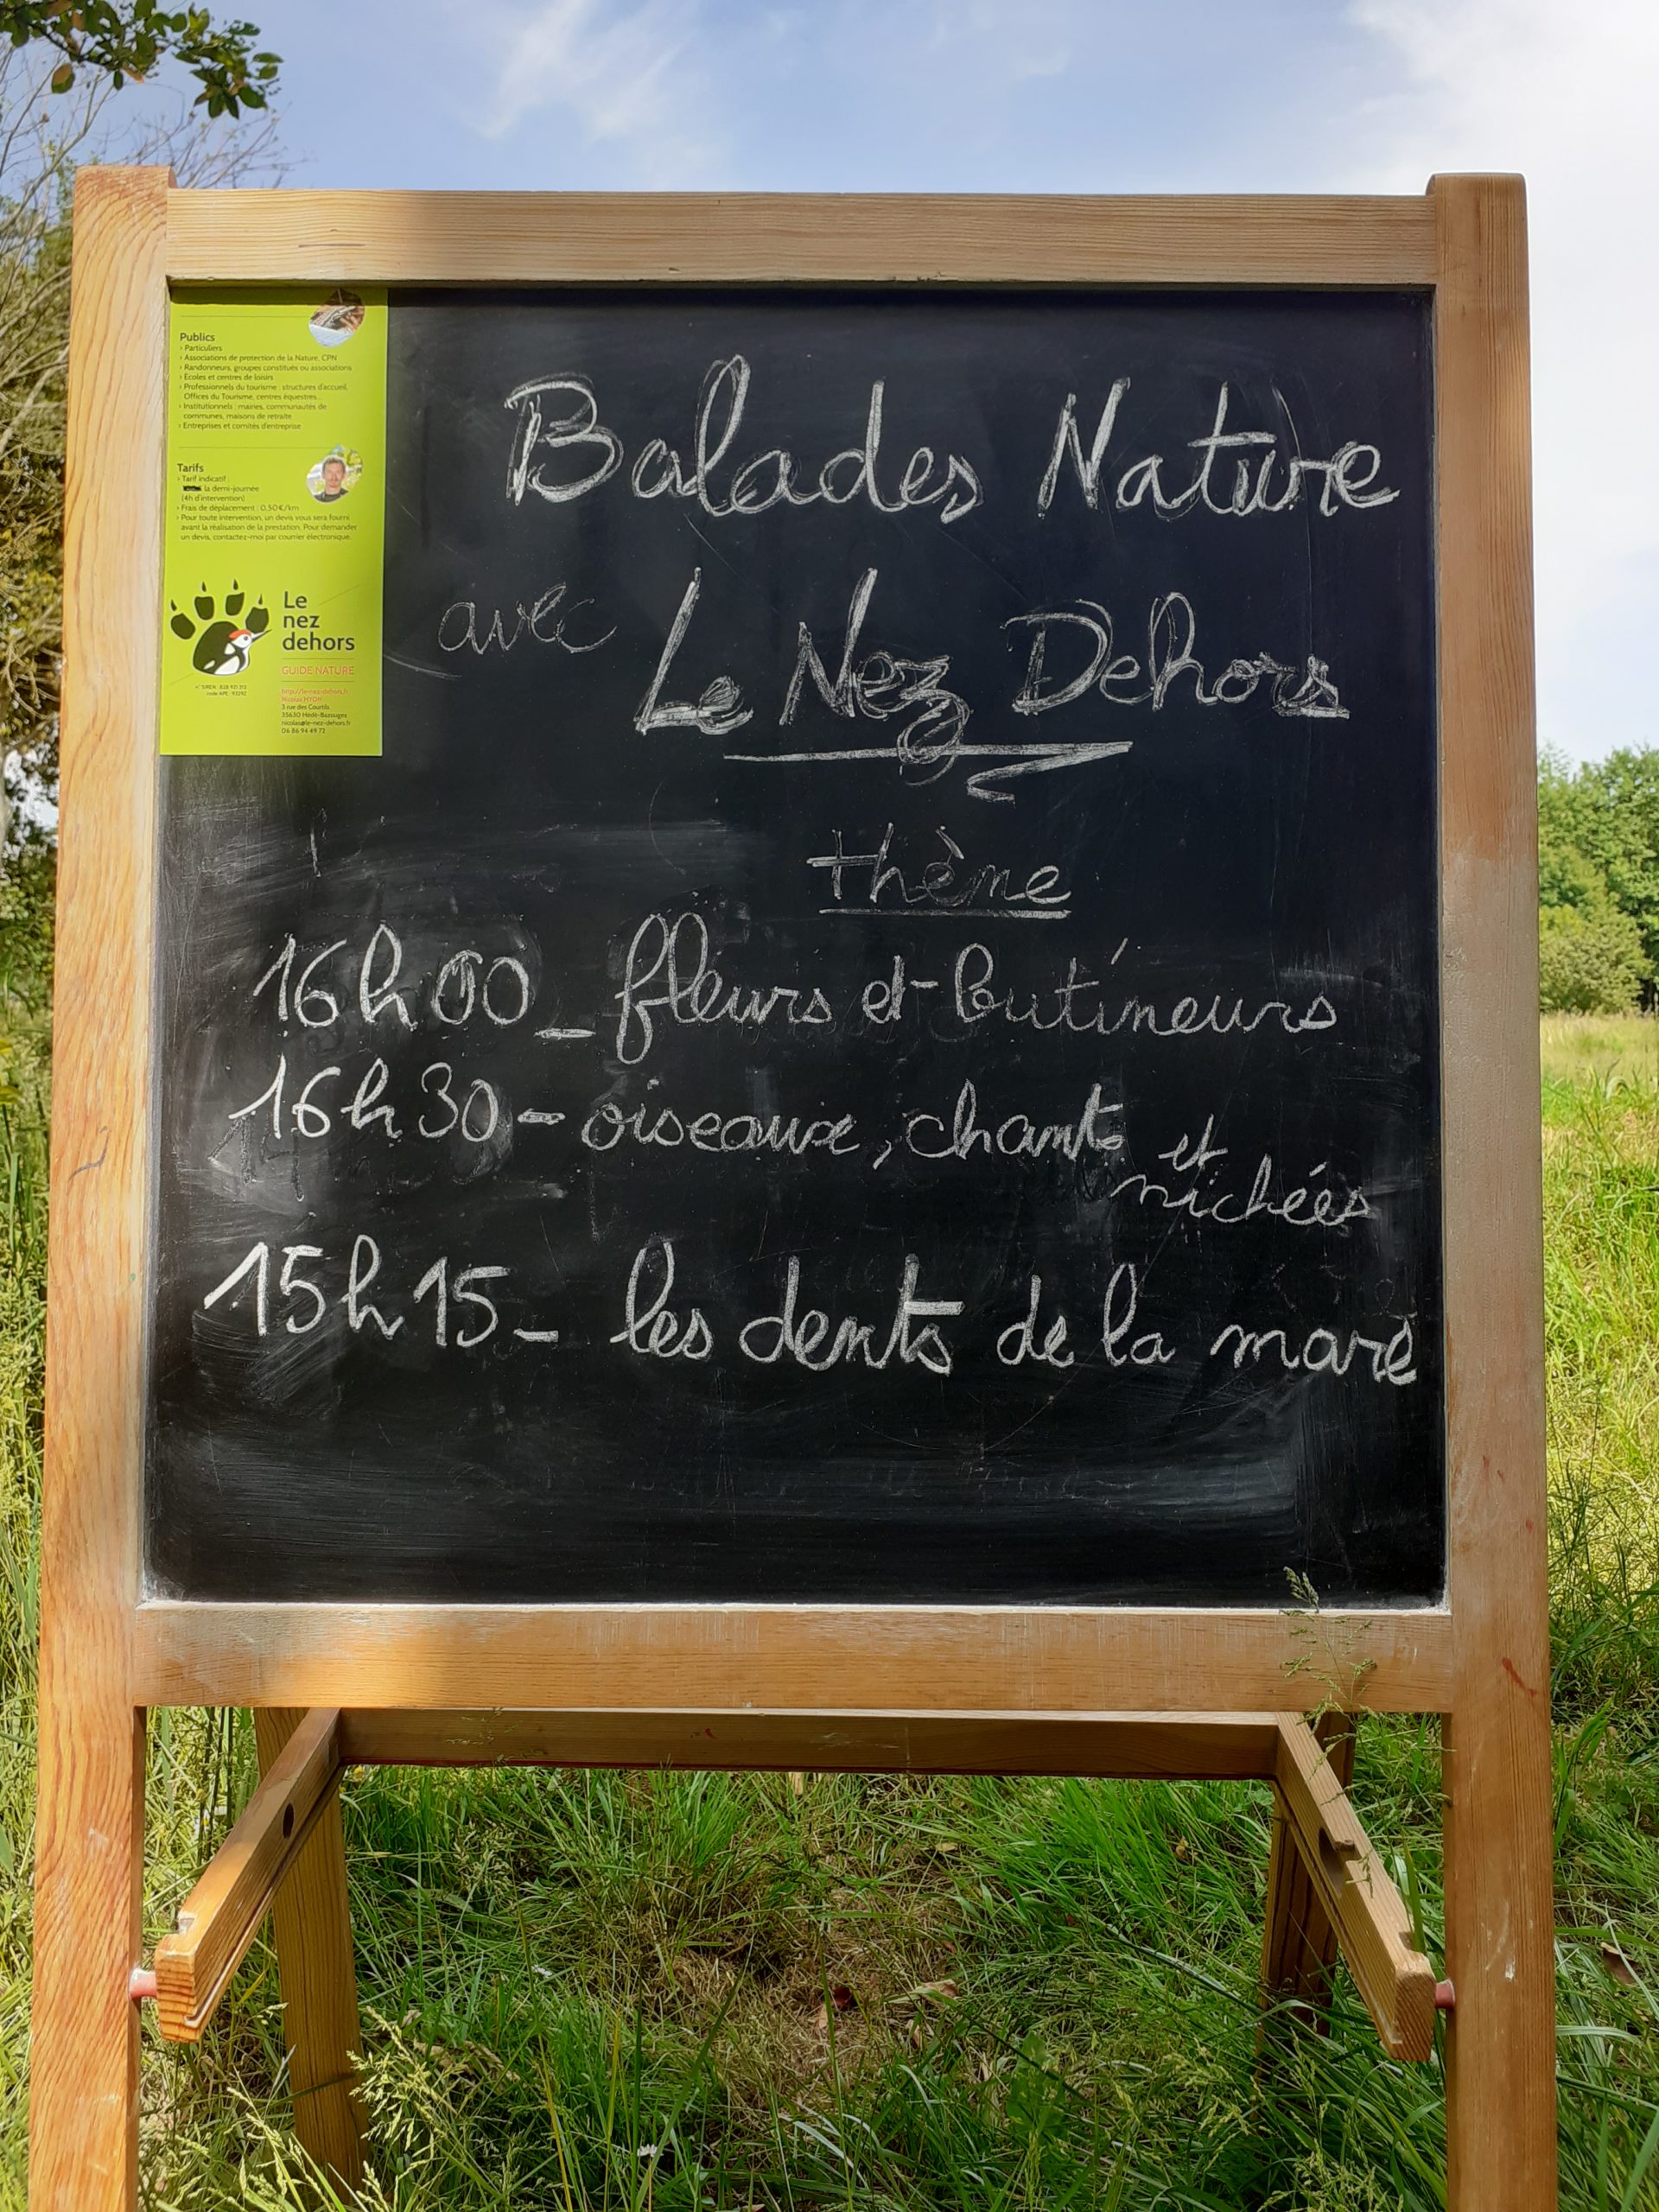 Publics
› Particuliers
› Associations de protection de la Nature, CPN
› Randonneurs, groupes constitués ou associations
› Écoles et centres de loisirs
› Professionnels du tourisme : structures d'accueil,
Offices du Tourisme, centres équestres...
› Institutionnels : mairies, communautés de
communes, maisons de retraite
› Entreprises et comités d'entreprise
Tarifs
› Tarif indicatif :
la demi-journée
(4h d'intervention)
› Frais de déplacement : 0,30€/km
› Pour toute intervention, un devis vous sera fourni
avant la réalisation de la prestation. Pour demander
un devis, contactez-moi par courrier électronique.
Le
nez
dehors
GUIDE NATURE
code APE
http://le-nez-dehors.fr
Nicolas HYON
3 rue des Courtils
35630 Hédé-Bazouges
nicolas@le-nez-dehors.fr
06 86 94 49 72
Balades Nature
avec Le Nez Dehors
thème
16h00_ fleurs et butineurs
16h30 - oiseaux, chants et
nichées
15h15_ les dents de la mare